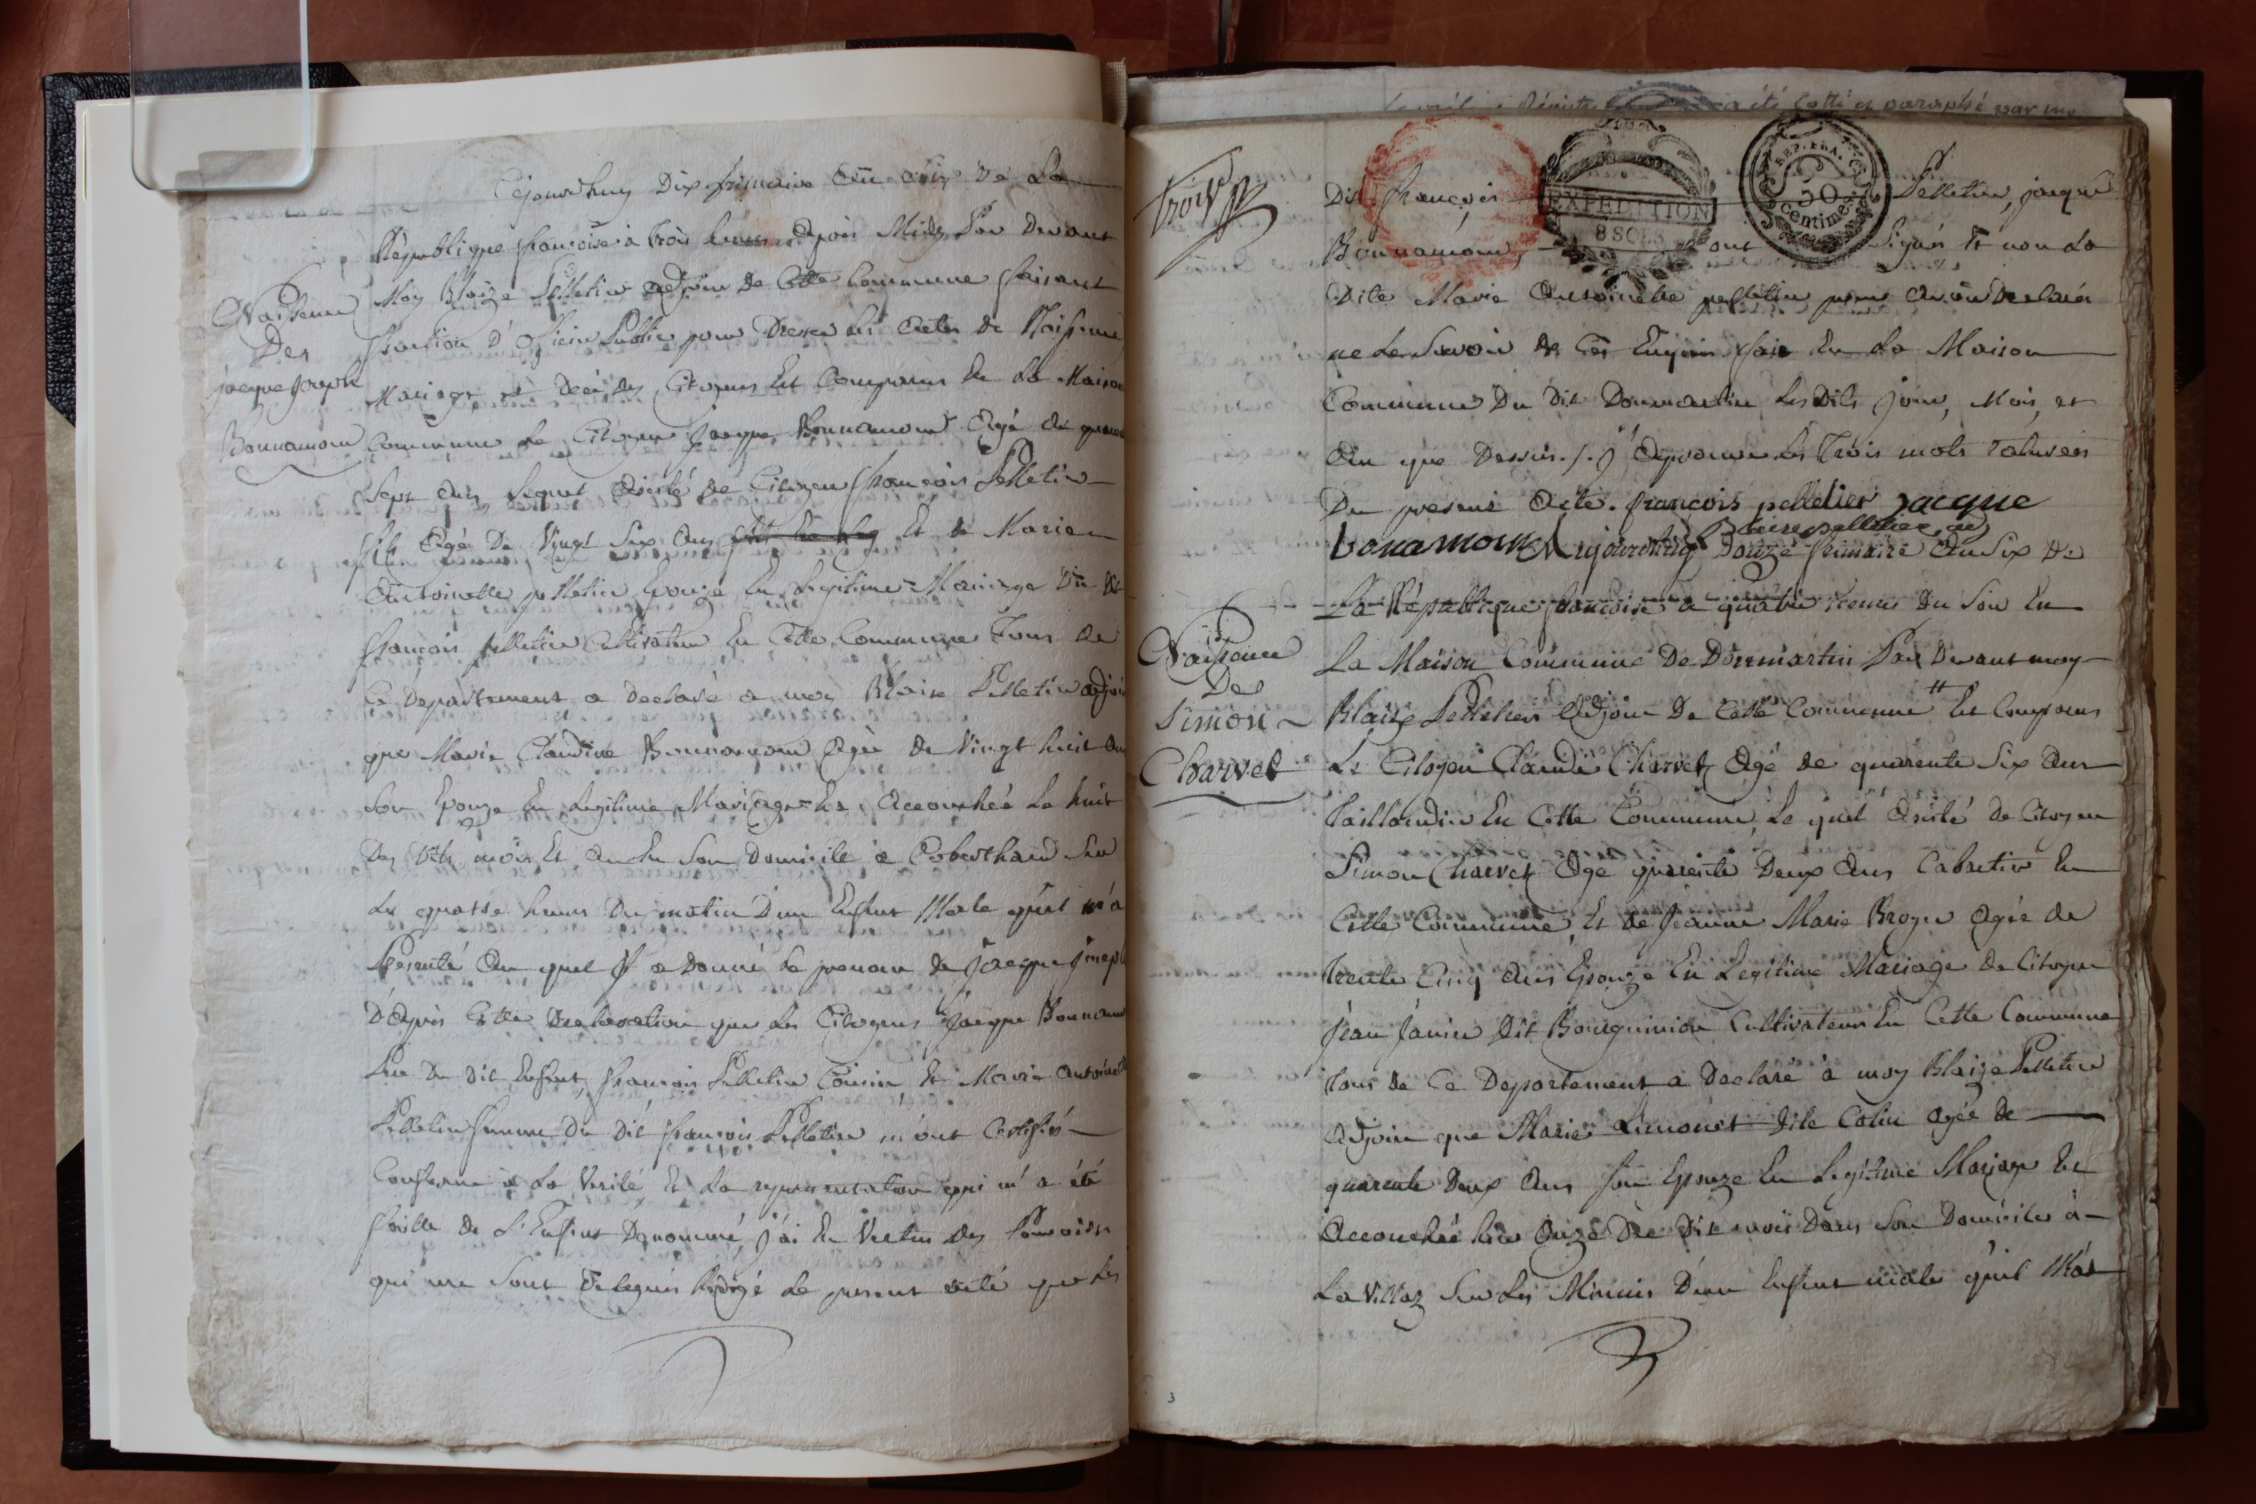 Cejourd'huy Dix frimaire an six de La
République françoise à trois heures après Midy Par Devant
Moy Blaize Pelletier adjoin de Cette Commune faisant
fonction d'officier Public pour Dresser les actes de Naissance
Mariage et Décès des Citoyens Est Comparus En La Maison
Commune Le Citoyen Jacque Bonnamour Agé de quarante
Sept ans Lequel Assisté de Citoyen François Pelletier
fils Agé De Vingt Six ans Et de Marie
Antoinette pelletier Epouze En Legitime Mariage Du Dit
françois pelletier Cultivateur En Cette Commune Tous de
Ce Département a Declaré a moy Blaise Pelletier adjoin
que Marie Claudine Bonnamour Agée de Vingt huit ans
Son Epouze En Legitime Mariage Est Accouchée Le huit
Des Dits mois Et an En Son Domicile a Coberthoud Sur
Les quatre heures Du matin D'un Enfant Male qu'il m'a
Présenté Au quel Il a Donné Le prenom de Jacque Joseph
D'après Cette Declaration que Les Citoyens Jacque Bonnamour
Pere Du Dit Enfant, françois Pelletier Cousin Et Marie Antoinette
Pelletier femme Du Dit françois Pelletier m'ont Certifiés
Conforme à La Vérité Et La représentation qui m'a été
faitte de L'Enfant Denommé, J'ai En Vertus des Pouvoirs
qui me Sont Delegués Rédigé Le present acte que Les
Naissence
Des
jacque Joseph
Bonnamour
Trois
Dit François Pelletier, jacque
Bonnamour, ont Signés Et non La
Dite Marie Antoinette pelletier pour avoir Declaré
ne Le Savoir de Ces Enquis fait En La Maison
Commune Du Dit Dommartin Les Dits Jour, Mois, et
An que Dessus. /. J'approuve Les Trois mots raturés
Du present Acte. françois pelletier jacque
bonamour Blaise pelletier adj
Aujourd'huy Douze frimaire An Six De
La République françoise a quatre heures Du Soir En
La Maison Commune De Dommartin Par Devant moy
Blaize Pelletier Adjoin De Cette Commune Est Comparus
Le Citoyen Claude Charvet Agé de quarente Six Ans
Taillandier En Cette Commune, Le quel Assisté de Citoyen
Simon Charvet Agé quarente Deux Ans Cabaretier En
Cette Commune Et de Jeanne Marie Broyer Agée de
trente Cinq Ans Epouze En Legitime Mariage de Citoyen
Jean Janier Dit Bourguinion Cultivateur En Cette Commune
Tous de Ce Departement a Declaré à moy Blaize Pelletier
Adjoin que Marie Limonet Dite Colin Agée de
quarente Deux Ans Son Epouze En Legitime Mariage Est
Accouchée hier Onze De Dit mois Dans Son Domicile à
La Villaz Sur Les Minuis D'un Enfant male qu'il M'as
Naissence
Des
Simon
Charvet
EXPEDITION
8 SOLS
REP. FRA.
50
Centime
3